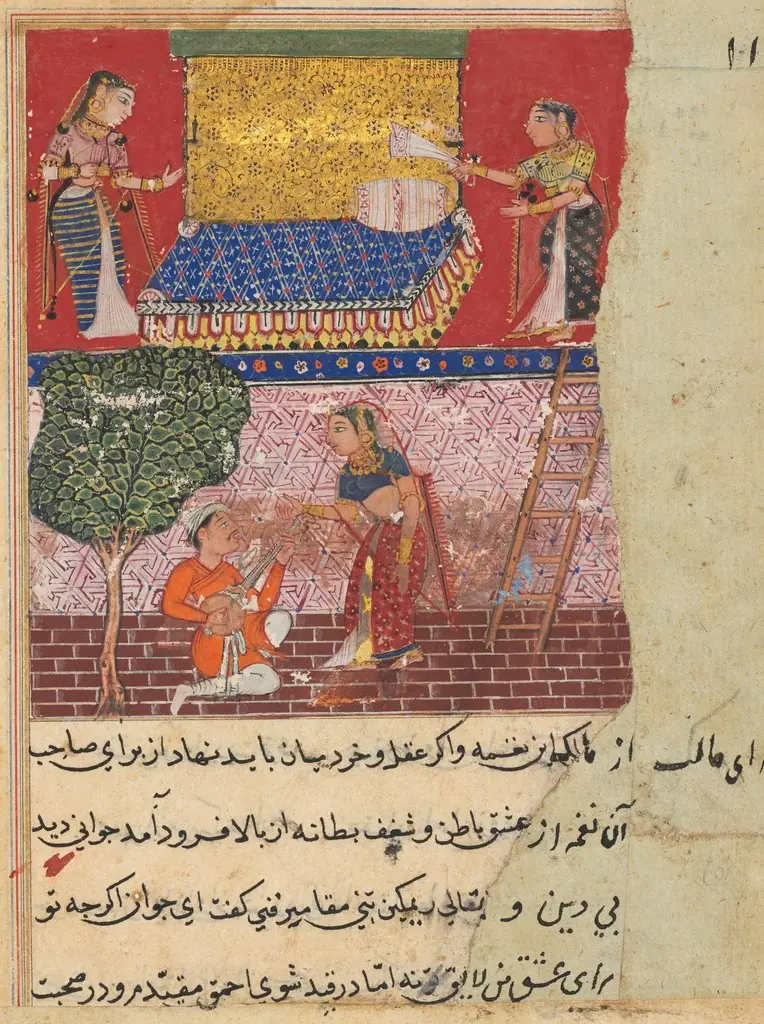 ١١
مالک از مالک این نغمه واکر عقل وخرد باید نهاد از برای صاحب
آن نغمه از عشق باطن وشغف بطانه از بالا فرود آمد جوانی دید
بی دین و ریمکین تنی مقامر فنی کفت ای جوان اکرجه تو
رای عشق من لایق نه اما در قید شوی احمق مقید مرو در صحبت